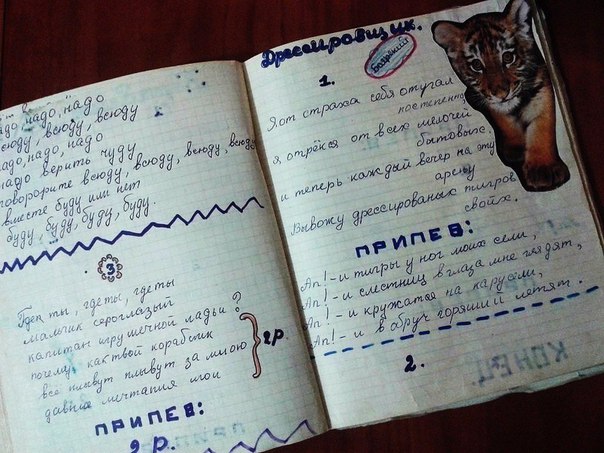 надо, надо, надо
всюду, всюду, всюду
надо, надо, надо
надо верить чуду
говорорите всюду, всюду, всюду, всюду
вместе буду или нет
буду, буду, буду, буду.
3
Где ты, где ты, где ты
мальчик сероглазый
капитан игрушечной ладьи?
почему как твой кораблик
всё плывут плывут за мною
давние мечтания мои
2р.
ПРИПЕВ:
2 р.
Дрессировщик.
Боярский
1.
Я от страха себя отучал
постепенно
я отрёкся от всех мелочей
бытовых,
и теперь каждый вечер на эту
арену
Вывожу дрессированых тигров
своих.
ПРИПЕВ:
Ап! - и тигры у ног моих сели,
Ап! - и с лестниц в глаза мне глядят,
Ап! - и кружатся на карусели,
Ап! - и в обруч горящий летят.
2.